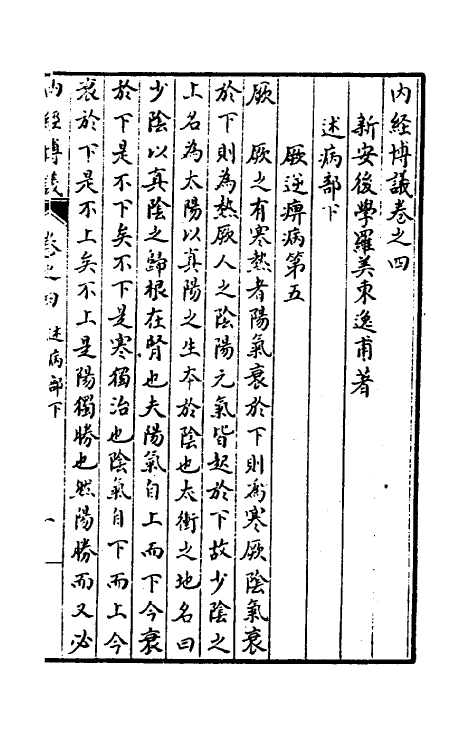 內經博議卷之四
新安後學羅美東逸甫著
述病部下
厥逆痹病第五
厥　厥之有寒熱者陽氣衰於下則為寒厥陰氣衰
於下則為熱厥人之陰陽元氣皆起於下故少陰之
上名為太陽以真陽之生本於陰也太衝之地名曰
少陰以真陰之歸根在腎也夫陽氣自上而下今衰
於下是不下矣不下是寒獨治也陰氣自下而上今
衰於下是不上矣不上是陽獨勝也然陽勝而又必
內經博議　卷之四　述病部下　一